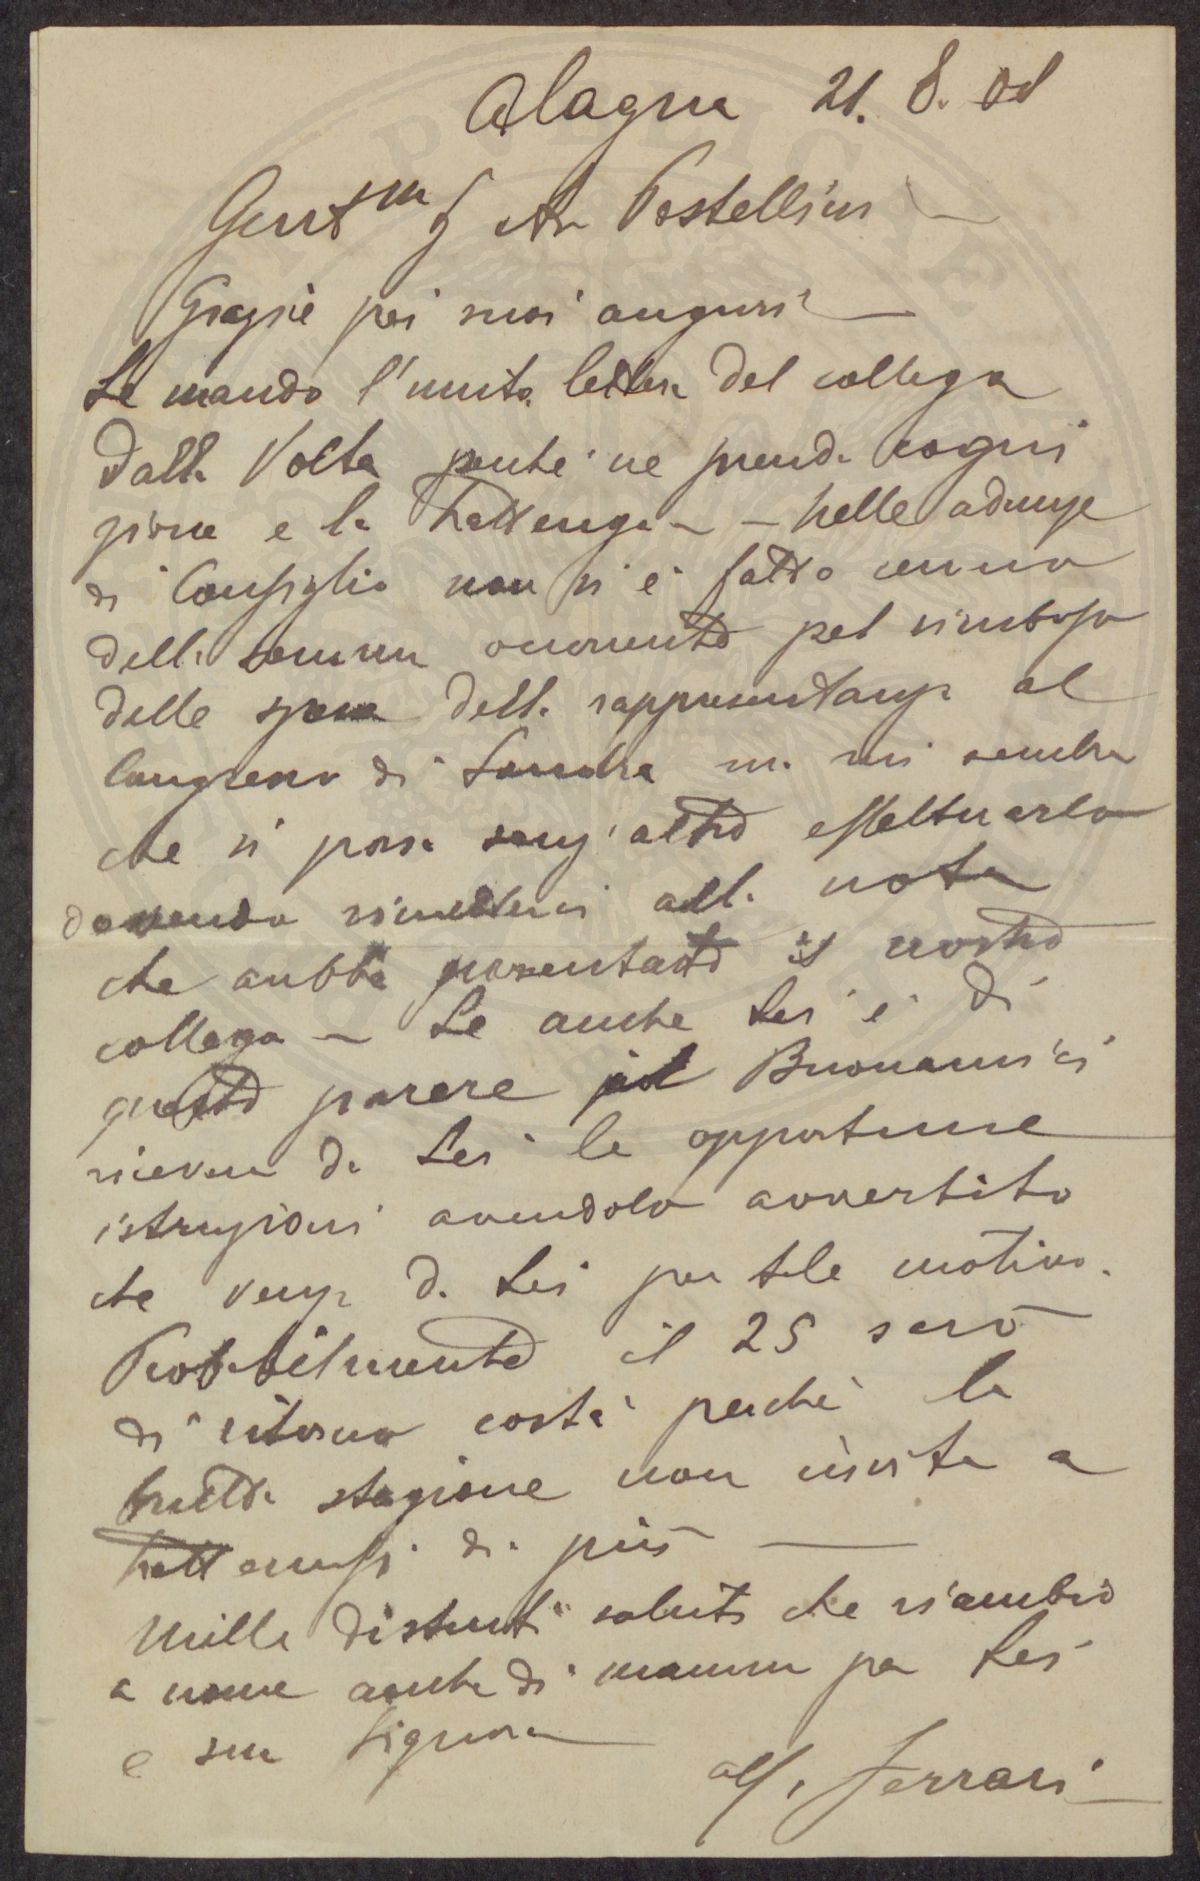 Alagna 21. 8. 01
Gent.mo Sr Avv Postellini
Grazie pei suoi auguri
Le mando l'unita lettera del collega
Dalla Volta perchè ne prenda cogni
zione e la trattenga — nelle adunze
di Consiglio non si è fatto cenno
della somma occorrente pel rimborso
delle spese della rappresentanza al
Congresso di Londra ma mi sembra
che si possa senz'altro effettuarlo
dovendo rimetterci alla nota
che avrebbe presentato il nostro
collega — Se anche Lei è di
questo parere il Buonamici
riceverà da Lei le opportune
istruzioni avendolo avvertito
che venga da Lei per tale motivo.
Probabilmente il 25 sarò
di ritorno costà perchè la
brutta stagione non invita a
trattenersi di più —
Mille distinti saluti che ricambio
a nome anche di mamma per Lei
e sua Signora
Aff. Ferrari